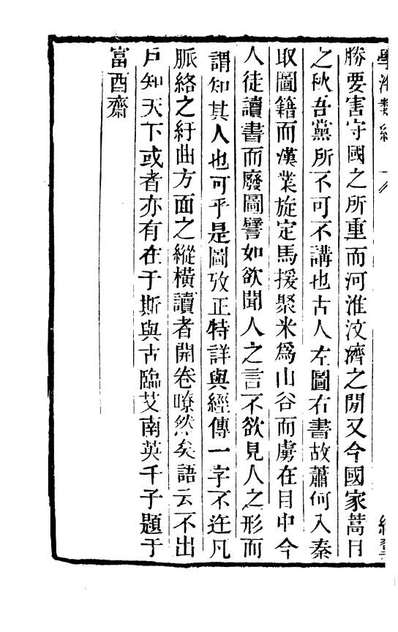 學海類編
勝要害守國之所重而河淮汶濟之閒又今國家蒿目
之秋吾黨所不可不講也古人左圖右書故蕭何入秦
取圖籍而漢業旋定馬援聚米爲山谷而虜在目中今
人徒讀書而廢圖譬如欲聞人之言不欲見人之形而
謂知其人也可乎是圖攷正特詳與經傳一字不迕凡
脈絡之紆曲方面之縱橫讀者開卷暸然矣語云不出
戶知天下或者亦有在于斯與古臨艾南英千子題于
富酉齋